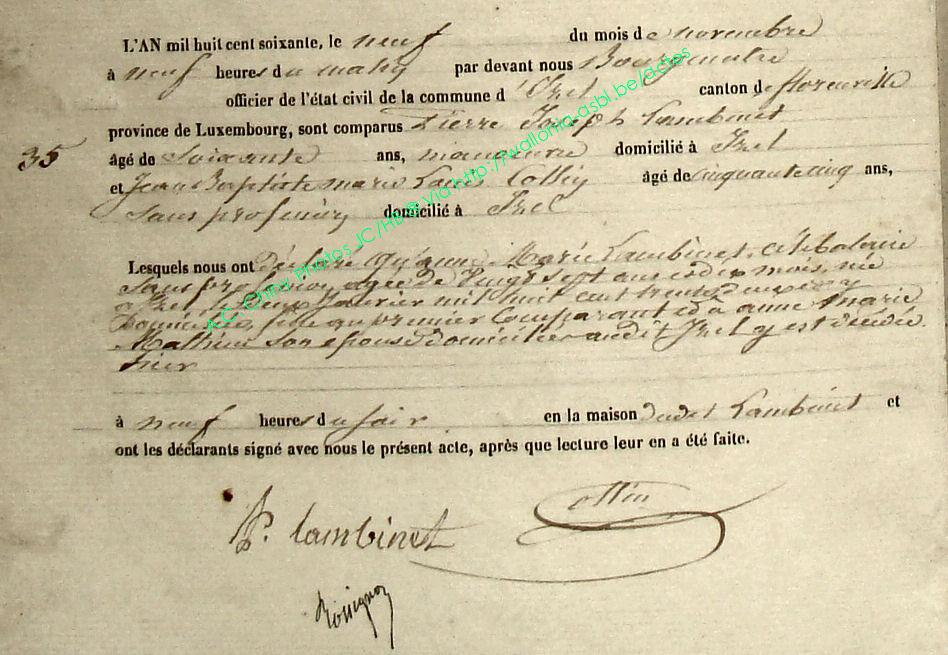 L'AN mil huit cent soixante, le neuf du mois de novembre
à neuf heures du matin par devant nous Bourgmestre
officier de l'état civil de la commune d'Izel canton de florenville
province de Luxembourg, sont comparus Pierre Joseph Lambinet
35
âgé de Soixante ans, manoeuvre domicilié à Izel
et Jean Baptiste marie Collin âgé de Cinquante cinq ans,
sans profession domicilié à Izel
Lesquels nous ont déclaré qu'anne Marie Lambinet, célibataire
sans profession, agée de vingt sept ans et dix mois, née
à Izel le deux Janvier mil huit cent trente y
domiciliée, fille du premier Comparant et d'anne Marie
Mathieu son épouse domiciliés audit Izel y est décédée
hier
à neuf heures du soir en la maison dudit Lambinet et
ont les déclarants signé avec nous le présent acte, après que lecture leur en a été faite.
P. Lambinet Collin
Rossignon
A.C. Chiny Photos JC/HB@ Via http://wallonia-asbl.be/actes